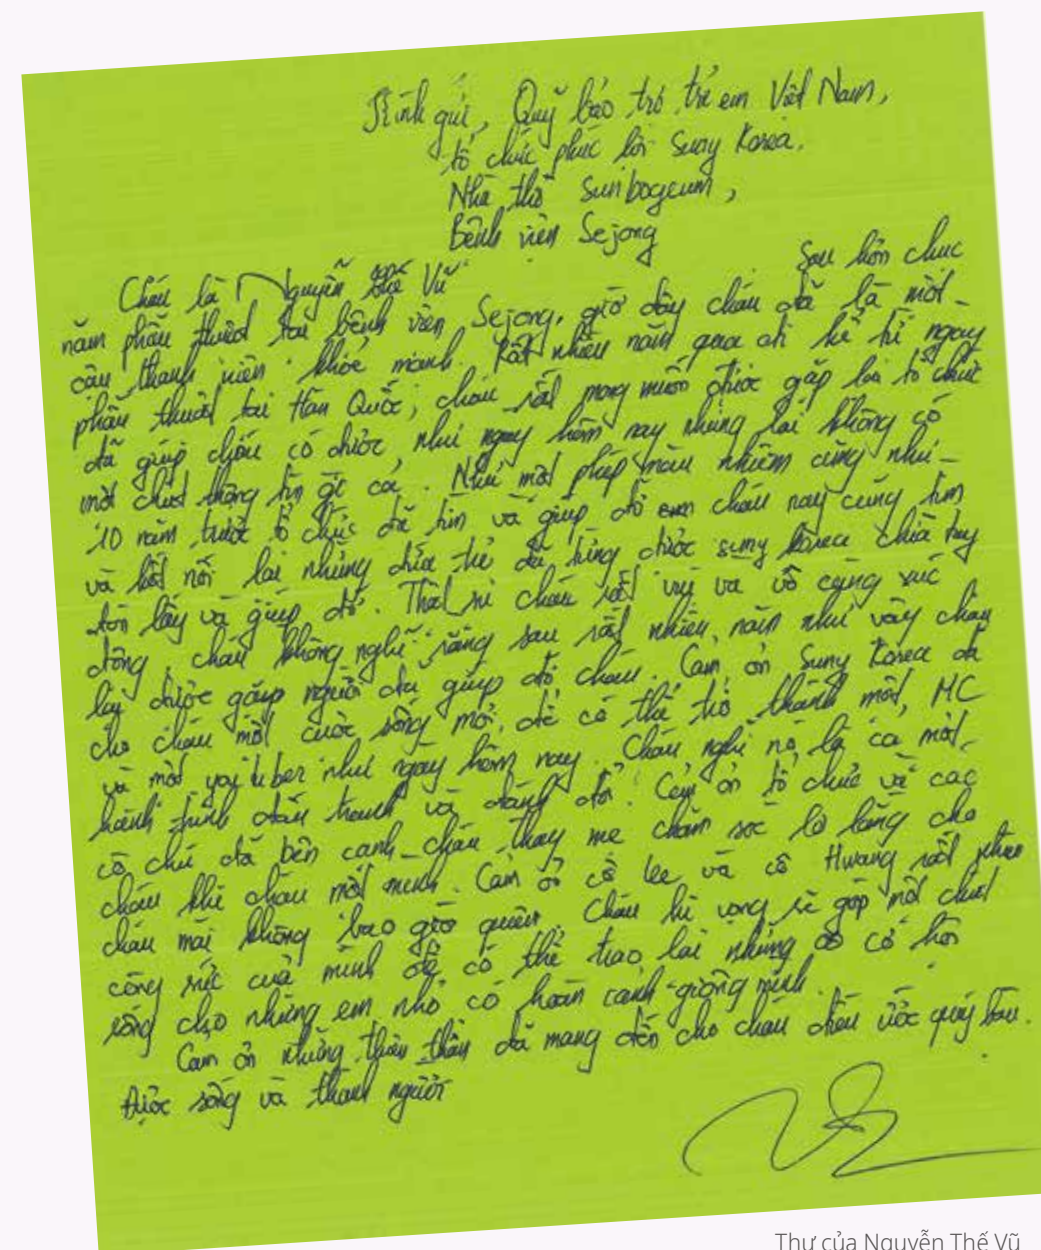 Kính gửi, Quỹ bảo trợ trẻ em Việt Nam,
tổ chức phúc lợi Suny Korea.
Nhà thờ Sunbogeum,
Bệnh viện Sejong
Cháu là Nguyễn Thế Vũ Sau hơn chục
năm phẫu thuật tại bệnh viện Sejong, giờ đây cháu đã là một
cậu thanh niên khỏe mạnh. Rất nhiều năm qua đi kể từ ngày
phẫu thuật tại Hàn Quốc, cháu rất mong muốn được gặp lại tổ chức
đã giúp cháu có được như ngày hôm nay nhưng lại không có
một chút thông tin gì cả. Như một phép màu nhiệm cũng như
10 năm trước tổ chức đã tìm và giúp đỡ cháu nay cũng tìm
và kết nối lại những đứa trẻ đã từng được suny korea chìa tay
đón lấy và giúp đỡ. Thật sự cháu rất vui và vô cùng xúc
động, cháu không nghĩ rằng sau rất nhiều năm như vậy cháu
lại được gặp người đã giúp đỡ cháu. Cảm ơn Suny Korea đã
cho cháu một cuộc sống mới, để có thể trở thành một MC
và một youtuber như ngày hôm nay. Cháu nghĩ nó là cả một
hành trình đấu tranh và đánh đổi. Cảm ơn tổ chức và các
cô chú đã bên cạnh cháu thay mẹ chăm sóc lo lắng cho
cháu khi cháu một mình. Cảm ơn cô lee và cô Hwang rất nhiều
cháu mãi không bao giờ quên. Cháu hi vọng sẽ góp một chút
công sức của mình để có thể trao lại những cơ hội
sống cho những em nhỏ có hoàn cảnh giống mình.
Cảm ơn những thiên thần đã mang đến cho cháu điều ước quý báu.
Được sống và thành người
Thư của Nguyễn Thế Vũ